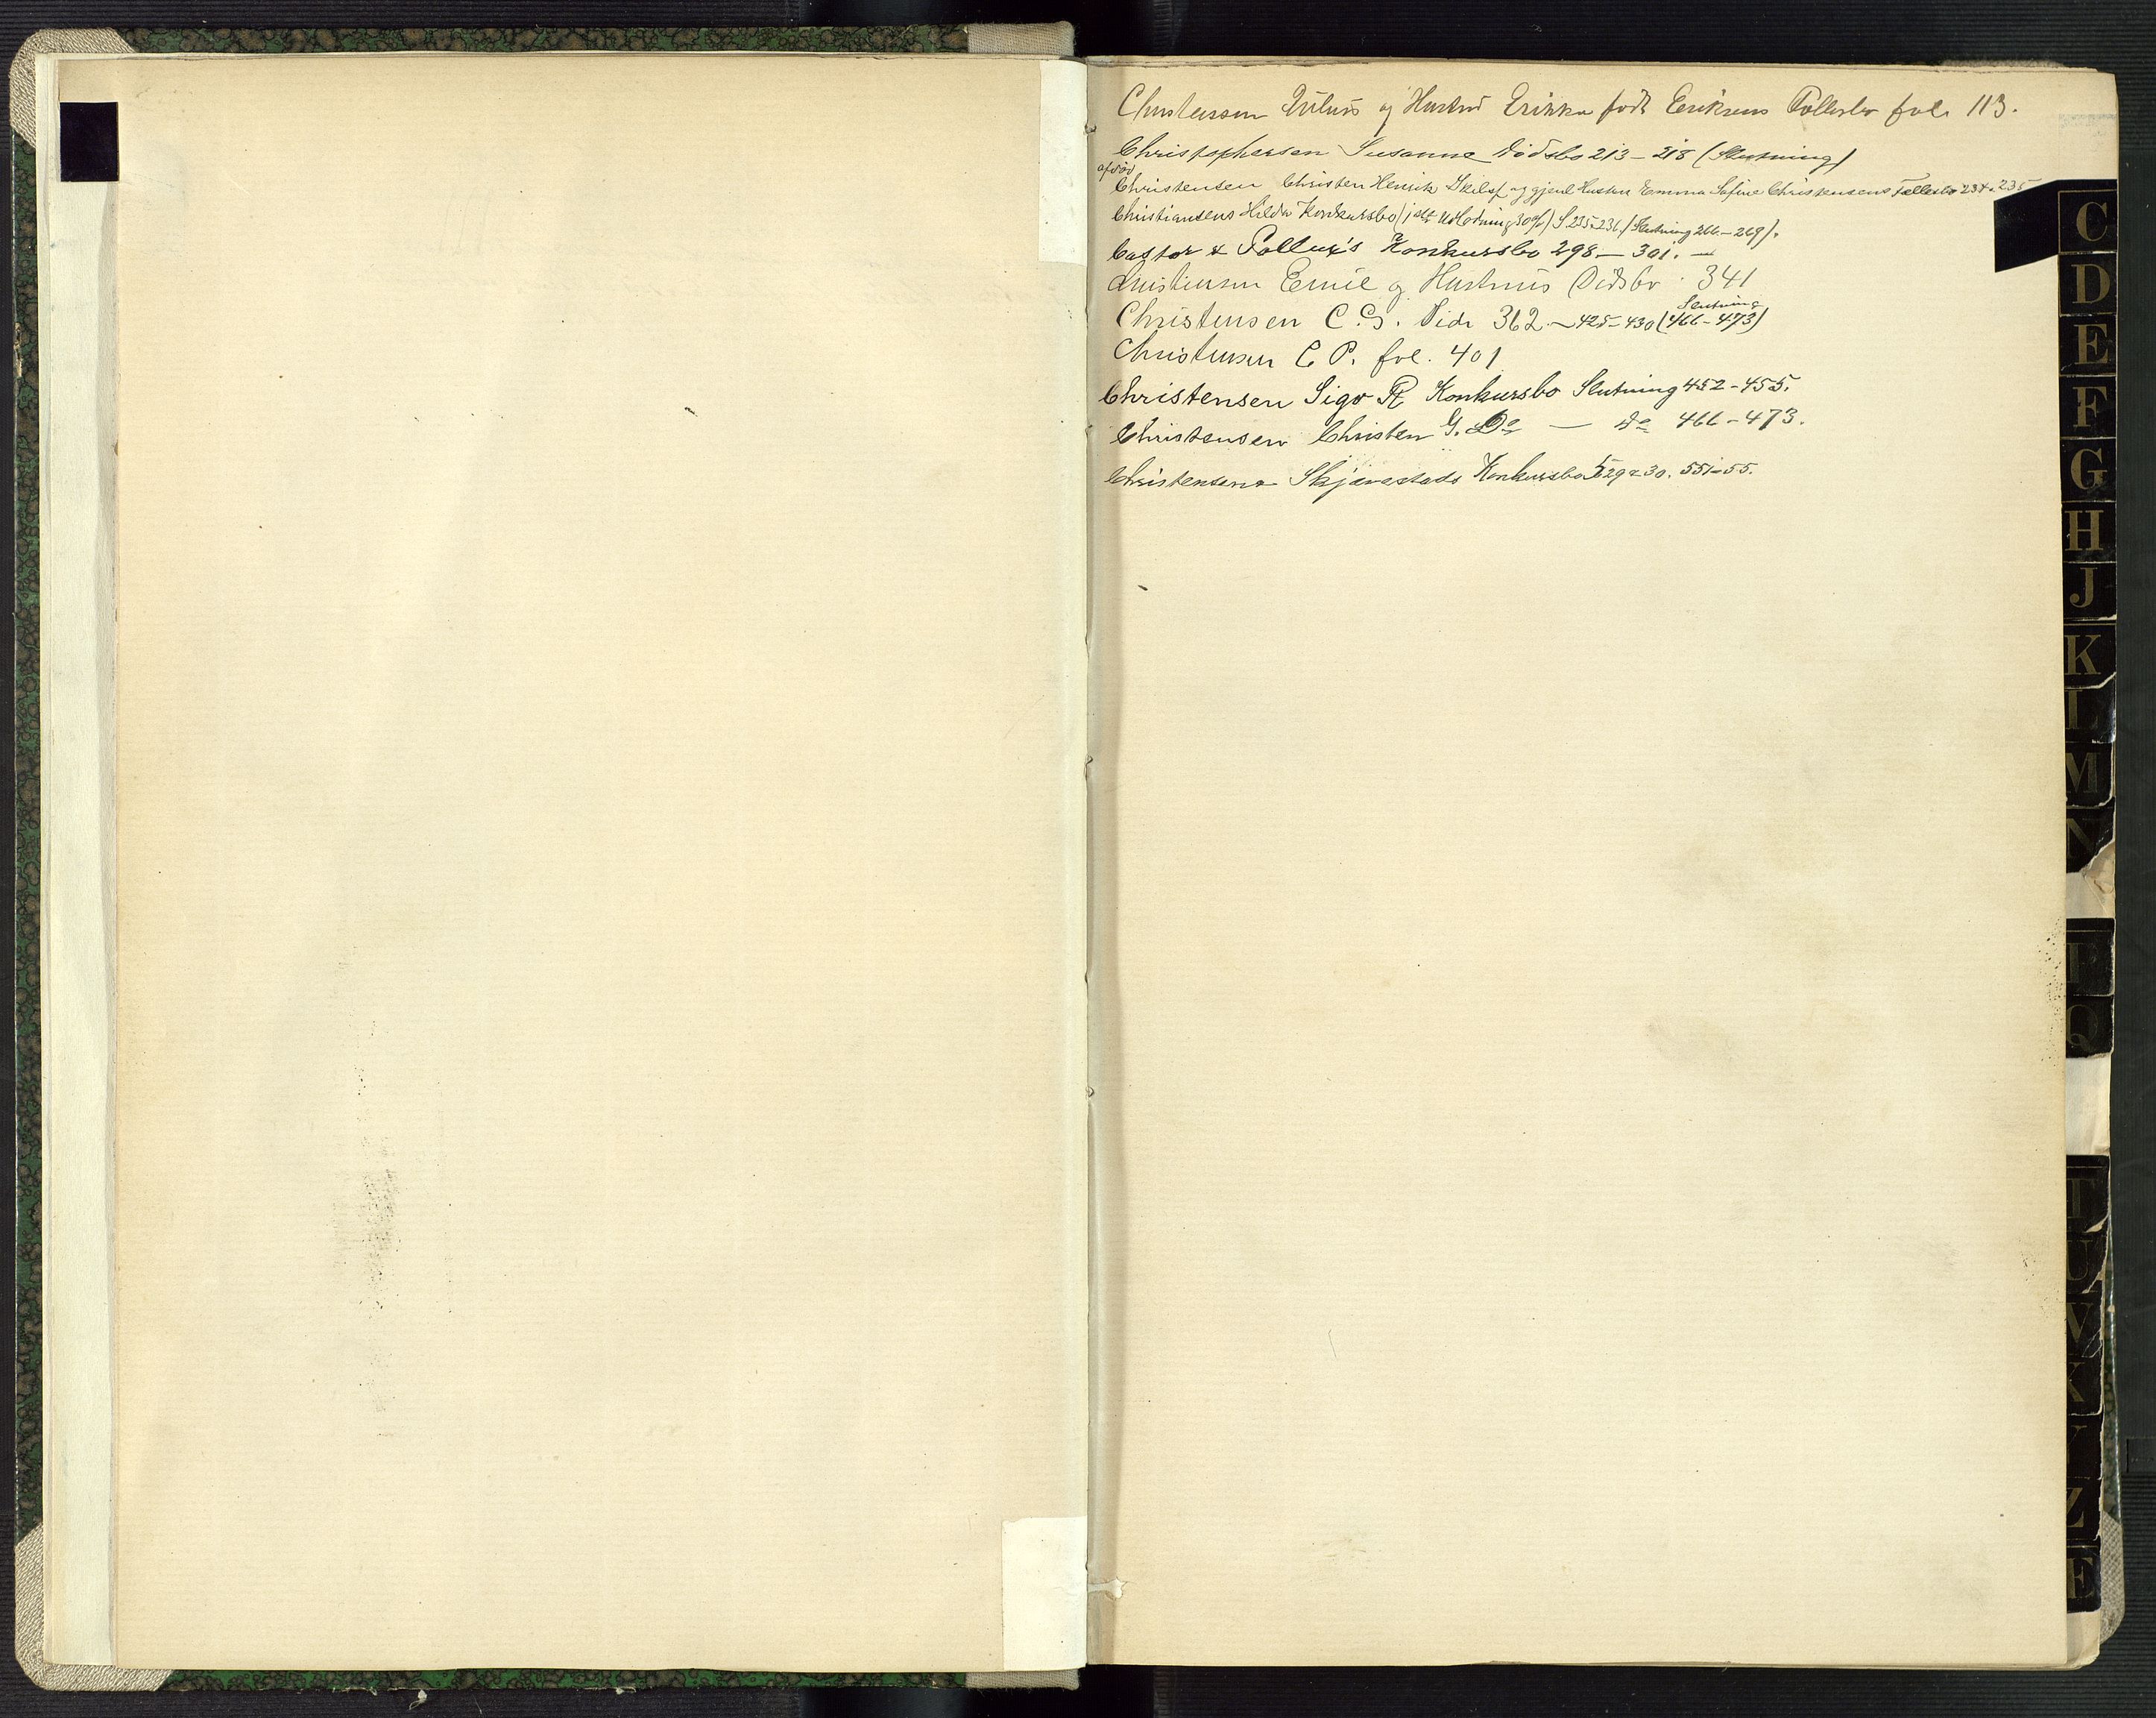 Christensen Julius og Hustru Erikka født Eriksens Fællesbo fol. 113.
Christophersen Susanne Dødsbo 213 - 218 (Slutning)
afdød
Christensen Christen Henrik og gjenl Hustru Emma Sofine Christensens Fællesbo 234. 235
Christiansens Hilda Konkursbo (1ste Udlodning 30%) S. 235-236. (Slutning 266 - 269).
Castor & Pollux's Konkursbo 298 - 301. —
Christensen Emil og Hustrus Dødsbo 341
Slutning
Christensen C. G. Side 362 - 425 - 430 (466 - 473)
Christensen C P. fol. 401
Christensen Sigv R Konkursbo Slutning 452 - 455.
Christensen Christen G. Do — do 466 - 473.
Christensens Skjærestads Konkursbo 529 - 30. 551-55.
C
D
E
F
G
H
J
K
L
M
N
P
Q
T
U
V
X
Y
Z
Æ